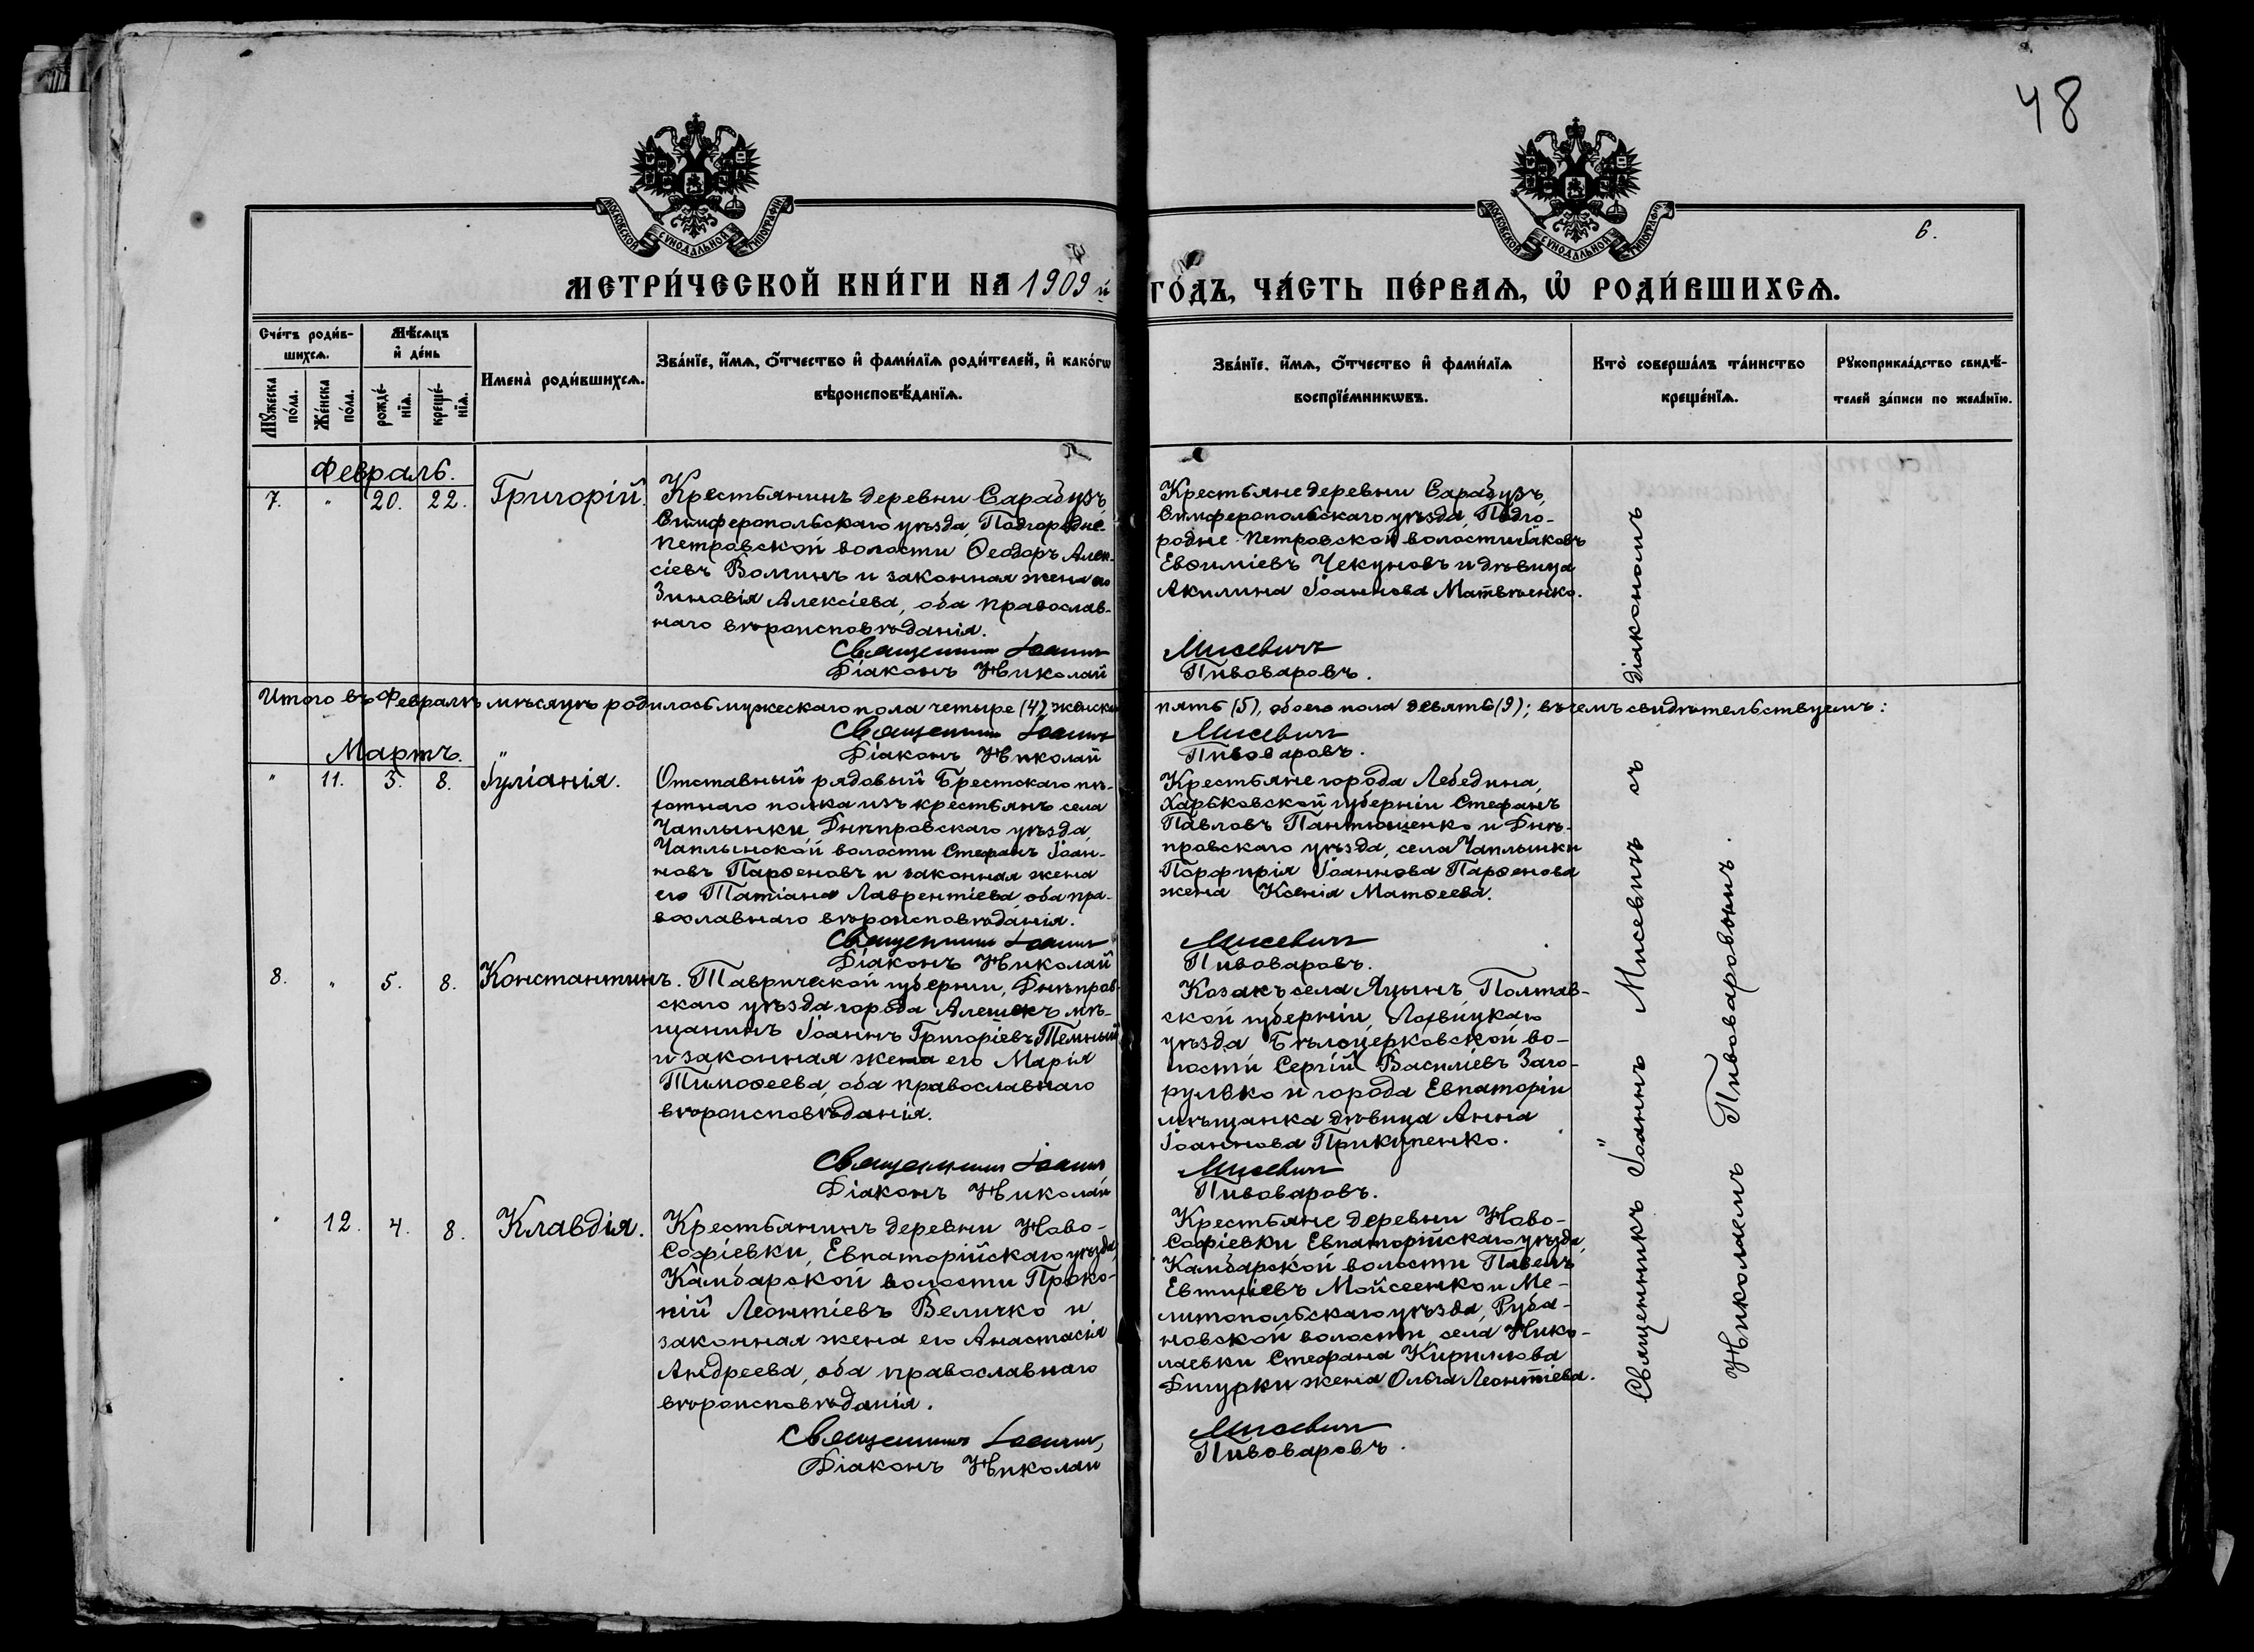 48
МОСКОВСКОЙ СѴНОДАЛЬНОЙ ТИПОГРАФІИ
МОСКОВСКОЙ СѴНОДАЛЬНОЙ ТИПОГРАФІИ
6.
МЕТРИ́ЧЕСКОЙ КНИ́ГИ НА 1909 й ГО́ДЪ, ЧА́СТЬ ПЕ́РВАѦ, Ѡ РОДИ́ВШИХСѦ.
Сче́тъ роди́в-
шихсѧ.
Мѣ́сѧцъ
и де́нь
Мꙋ́жеска по́ла.
Же́нска по́ла.
рожде́-нїѧ.
креще́-нїѧ.
Имена̀ роди́вшихсѧ.
Зва́нїе, и́мѧ, ѻ́тчество и фами́лїѧ роди́телей, и како́гѡ
вѣроисповѣ́данїѧ.
Зва́нїе, и́мѧ, ѻ́тчество и фами́лїѧ
воспрїе́мникѡвъ.
Кто̀ соверша́лъ та́инство
креще́нїѧ.
Рꙋкоприкла́дство свидѣ́-
телей за́писи по жела́нїю.
Февраль.
7. " 20. 22. Григорій.
Крестьянинъ деревни Сарабузъ,
Симферопольскаго уѣзда, Подгородне-
Петровской волости Ѳеодоръ Алек-
сіевъ Воминъ и законная жена его
Зиновія Алексіева, оба православ-
наго вѣроисповѣданія.
Священникъ Іоаннъ
Діаконъ Николай
Крестьяне деревни Сарабузъ,
Симферопольскаго уѣзда, Подго-
родне-Петровской волости Іаковъ
Евѳиміевъ Чекуновъ и дѣвица
Акилина Іоаннова Матвѣенко.
Мисевичъ
Пивоваровъ.
Итого въ Февралѣ мѣсяцѣ родилось мужескаго пола четыре (4), женскаго пять (5), обоего пола девять (9); въ чемъ свидѣтельствуемъ:
Священникъ Іоаннъ Мисевичъ
Діаконъ Николай Пивоваровъ.
Мартъ.
" 11. 3. 8. Іуліанія.
Отставный рядовый Брестскаго пѣ-
хотнаго полка изъ крестьянъ села
Чаплынки, Днѣпровскаго уѣзда,
Чаплынской волости Стефанъ Іоан-
новъ Парѳеновъ и законная жена
его Татіана Лаврентіева, оба пра-
вославнаго вѣроисповѣданія.
Священникъ Іоаннъ
Діаконъ Николай
Крестьяне города Лебедина,
Харьковской губерніи Стефанъ
Павловъ Пантюшенко и Днѣ-
провскаго уѣзда, села Чаплынки
Порфирія Іоаннова Парѳенова
жена Ксенія Матѳеева.
Мисевичъ
Пивоваровъ.
8. " 5. 8. Константинъ.
Таврической губерніи, Днѣпров-
скаго уѣзда города Алешекъ мѣ-
щанинъ Іоаннъ Григоріевъ Темный
и законная жена его Марія
Тимоѳеева, оба православнаго
вѣроисповѣданія.
Священникъ Іоаннъ
Діаконъ Николай
Козакъ села Яцынъ, Полтав-
ской губерніи, Лохвицкаго
уѣзда Бѣлоцерковской во-
лости Сергій Василіевъ Заго-
рулько и города Евпаторіи
мѣщанка дѣвица Анна
Іоаннова Прикупенко.
Мисевичъ
Пивоваровъ.
" 12. 4. 8. Клавдія.
Крестьянинъ деревни Ново-
Софіевки, Евпаторійскаго уѣзда,
Камбарской волости Проко-
пій Леонтіевъ Величко и
законная жена его Анастасія
Андреева, оба православнаго
вѣроисповѣданія.
Священникъ Іоаннъ
Діаконъ Николай
Крестьяне деревни Ново-
Софіевки Евпаторійскаго уѣзда,
Камбарской волости Павелъ
Евтихіевъ Мойсеенко и Ме-
литопольскаго уѣзда, Руба-
новской волости, села Нико-
лаевки Стефана Кириллова
Дигурки жена Ольга Леонтіева.
Мисевичъ
Пивоваровъ.
Священникъ Іоаннъ Мисевичъ съ діакономъ
Николаемъ Пивоваровымъ.